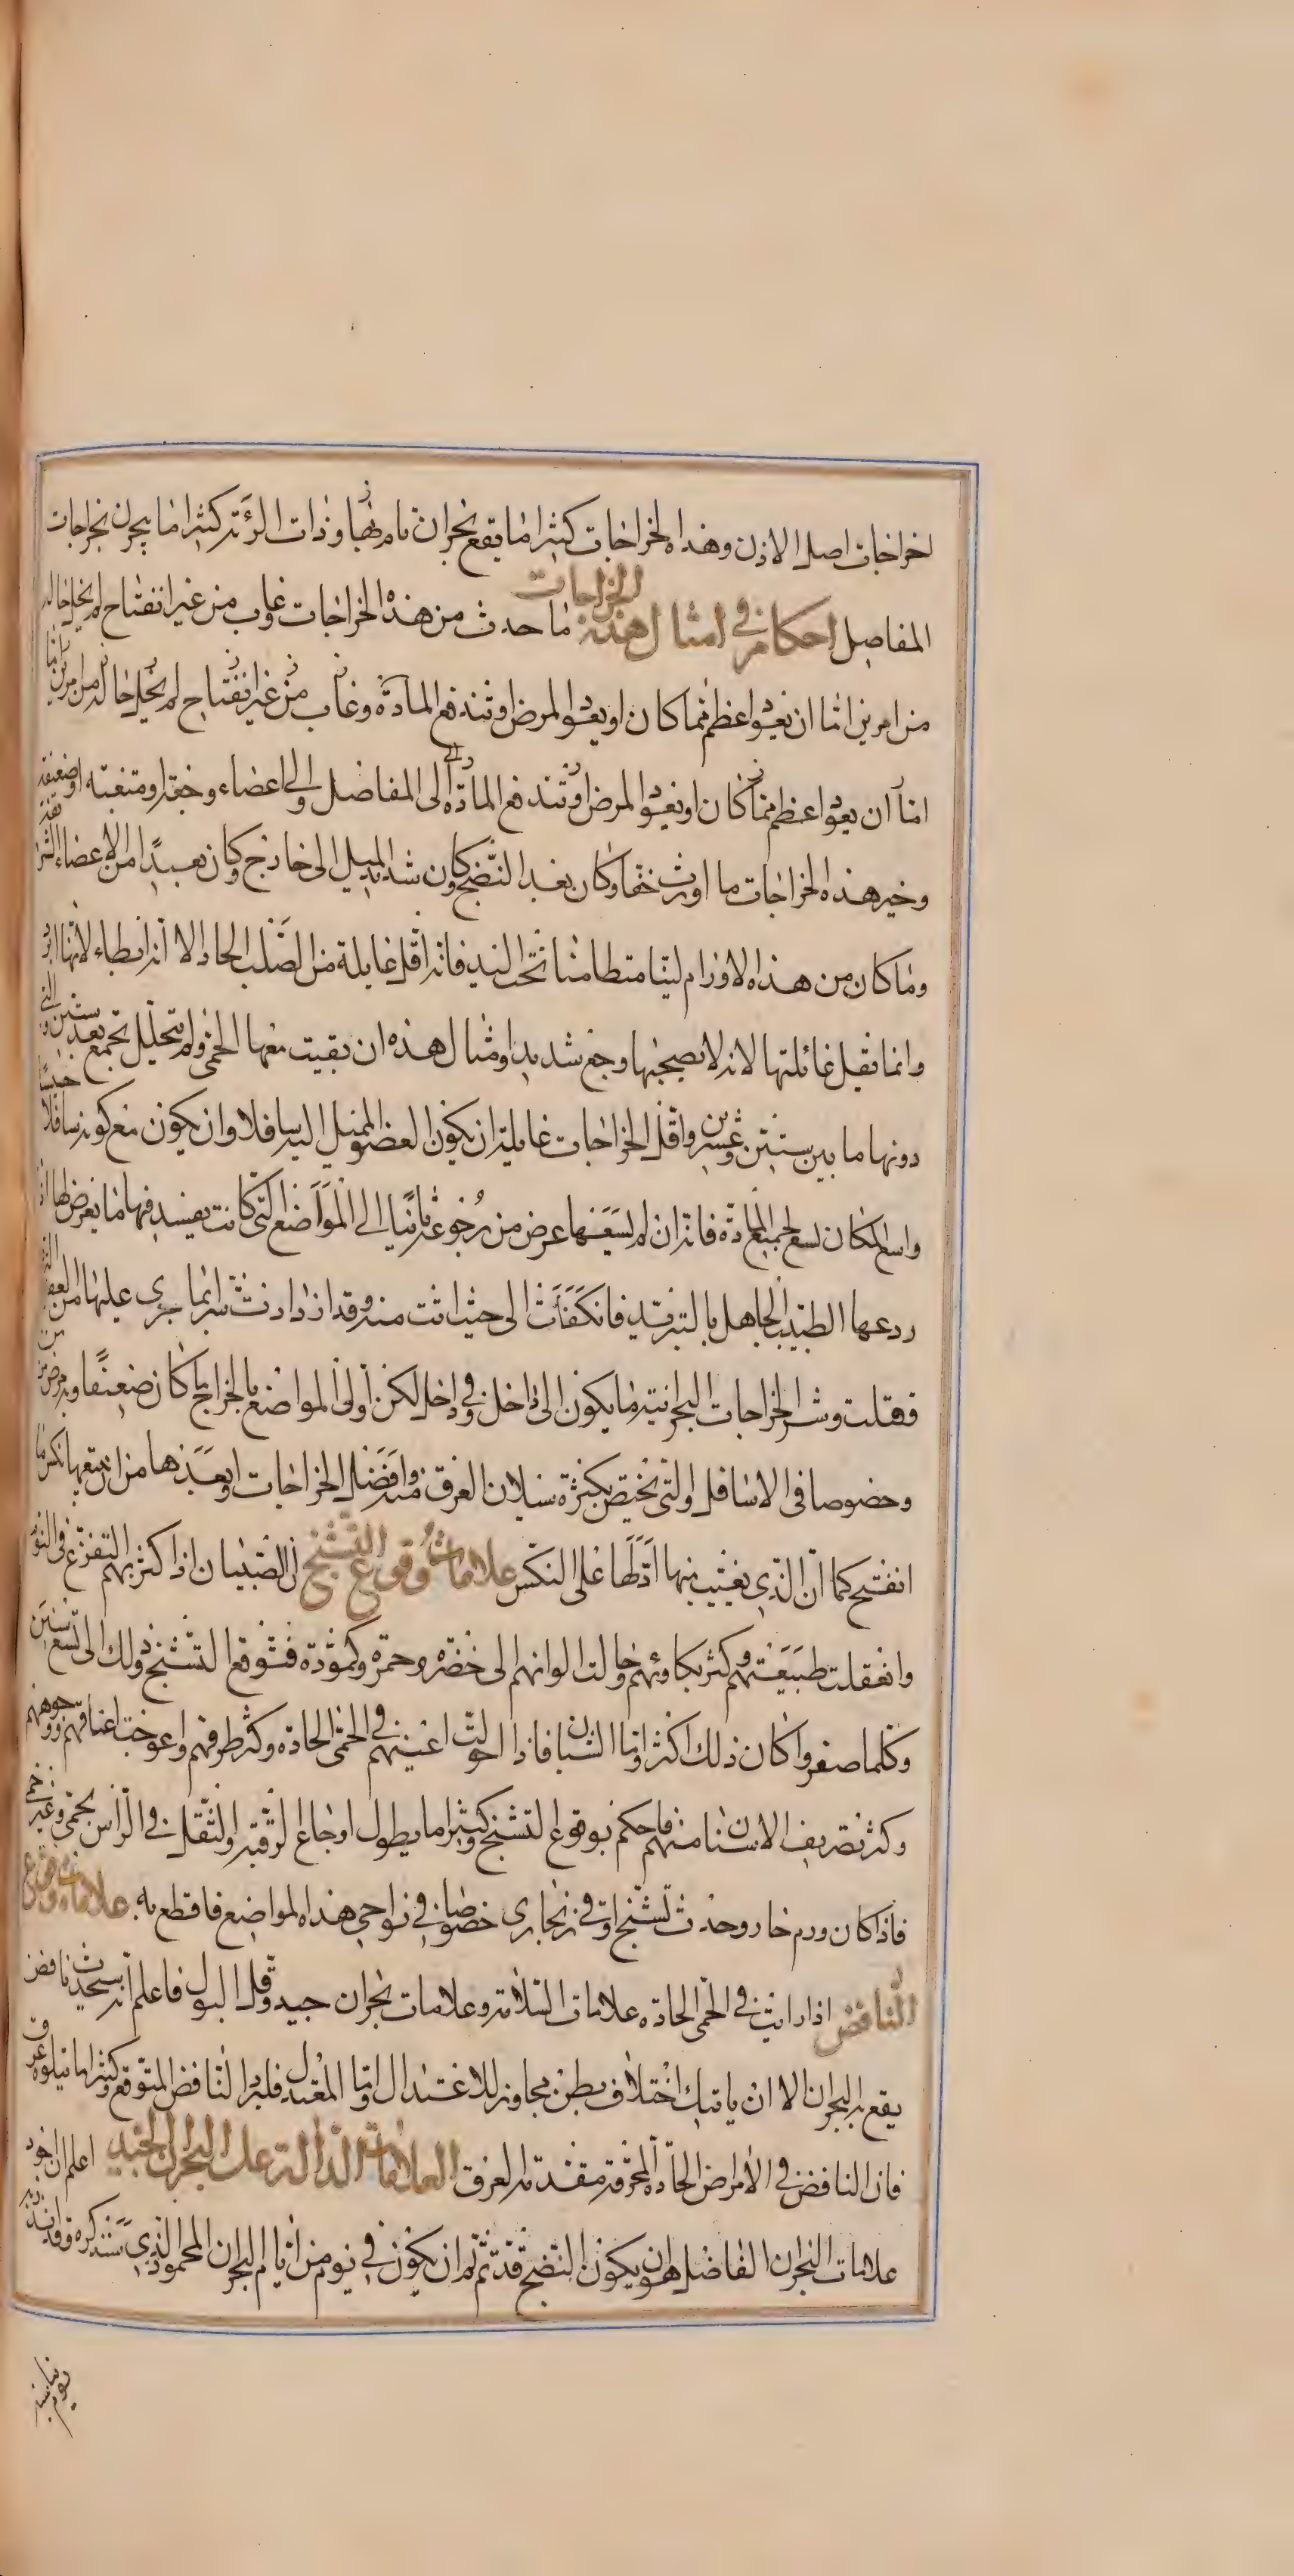 اخراجات اصل الاذن وهذه الخراجات كثيرا ما يقع بحران تام بها وذات الرئة كثيرا ما يبحرن بخراجات
المفاصل احكام في امثال هذه الخراجات ما حدث من هذه الخراجات وغاب من غير انفتاح لم يخل حاله
من امرين اما ان يعود اعظم مما كان او يعود المرض او تندفع المادة وغاب من غير انفتاح لم يخل حاله من امرين اما
اما ان يعود اعظم مما كان او يعود المرض او تندفع المادة الى المفاصل والى اعضاء وجعة او متعبة او ضعيفة
وخير هذه الخراجات ما اورث خفا وكان بعد النضج وكان شديد الميل الى خارج وكان بعيدا من الاعضاء الشر
وما كان من هذه الاورام لينا متطامنا تحت اليد فانه اقل غايلة من الصلب الحاد الا انه ابطاء لانها ابرد
وانما تقل غائلتها لانه لا يصحبها وجع شديد وامثال هذه ان بقيت معها الحمى ولم تتحلل تجمع بعد ستين الى
دونها ما بين ستين وعشرين واقل الخراجات غايلة ان يكون العضو الميل اليه سافلا وان يكون مع كونه سافلا
واسع المكان يسع لجميع المادة فانه ان لم يسعها عرض من رجوعه ثانيا الى المواضع التي كانت يفسد فيها ما يعرض لها اذ
ردعها الطبيب الجاهل بالتبريد فانكفأت الى حيث اتت منه وقد ازدادت شرا بما جرى عليها من العفو
فقتلت وشر الخراجات البحرانية ما يكون الى داخل وفي داخل لكن اولى المواضع بالخراج ما كان ضعيفا وبه مرض من
وخصوصا في الاسافل والتي يختص بكثرة سيلان العرق منه وافضل الخراجات وابعدها من ان يتبعها نكس ما
انفتح كما ان الذي يغيب منها ادلها على النكس علامات وقوع التشنج ان الصبيان اذا كثر بهم التفزع في النوم
وانعقلت طبيعتهم وكثر بكاوئهم وحالت الوانهم الى خضرة وحمرة وكمودة فتوقع التشنج وذلك الى تسع سنين
وكلما صغروا كان ذلك اكثر واما الشبان فاذا احولت اعينهم في الحمى الحادة وكثر طرفهم واعوجت اعناقهم ووجوههم
وكثر تصريف الاسنان منهم فاحكم بوقوع التشنج وكثيرا ما يطول اوجاع الرقبة والثقل في الراس بحمى وغير حمى
فاذا كان ورم حار وحدث تشنج او قي زنجاري خصوصا في نواحي هذه المواضع فاقطع به علامات وقوع
النافض اذا رايت في الحمى الحادة علامات السلامة وعلامات بحران جيد وقل البول فاعلم انه سيحدث نافض
يقع به البحران الا ان ياتيك اختلاف بطن مجاوز للاعتدال واما المعتدل فلا يرد النافض المتوقع وكثيرا ما يتلوه عرق
فان النافض في الامراض الحادة المحرقة مقدمة العرق العلامات الدالة على البحران الجيد اعلم ان اجود
علامات البحران الفاضل هو ان يكون النضج قد تم ثم ان يكون في يوم من ايام البحران المحمود الذي سنذكره وقد انذر به
يوم